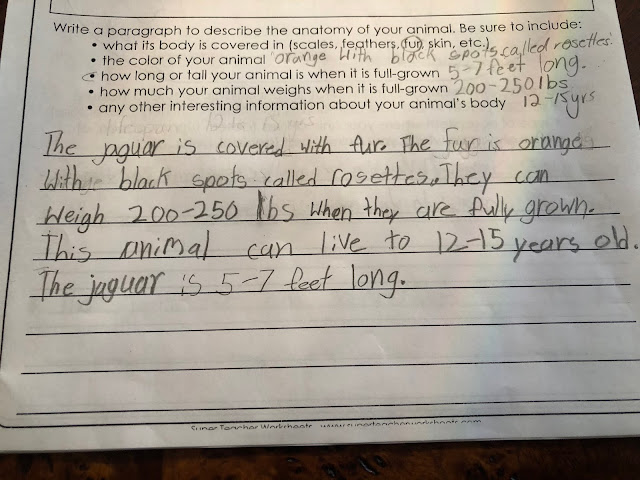 Write a paragraph to describe the anatomy of your animal. Be sure to include:
• what its body is covered in (scales, feathers, fur, skin, etc.)
• the color of your animal orange with black spots called rosettes.
• how long or tall your animal is when it is full-grown 5-7 feet long.
• how much your animal weighs when it is full-grown 200-250 lbs
• any other interesting information about your animal's body 12-15 yrs
The jaguar is covered with fur. The fur is orange
With black spots called rosettes. They can
Weigh 200-250 lbs when they are fully grown.
This animal can live to 12-15 years old.
The jaguar is 5-7 feet long.
Super Teacher Worksheets www.superteacherworksheets.com